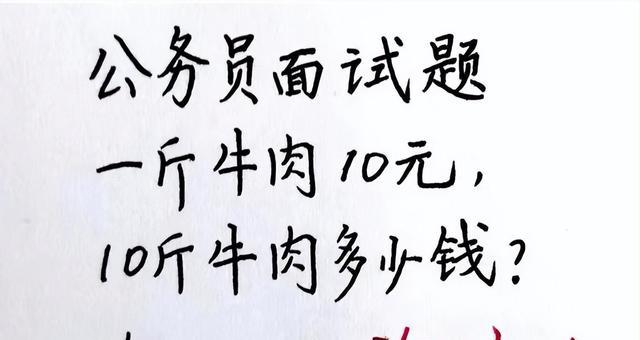 公务员面试题
一斤牛肉10元，
10斤牛肉多少钱？